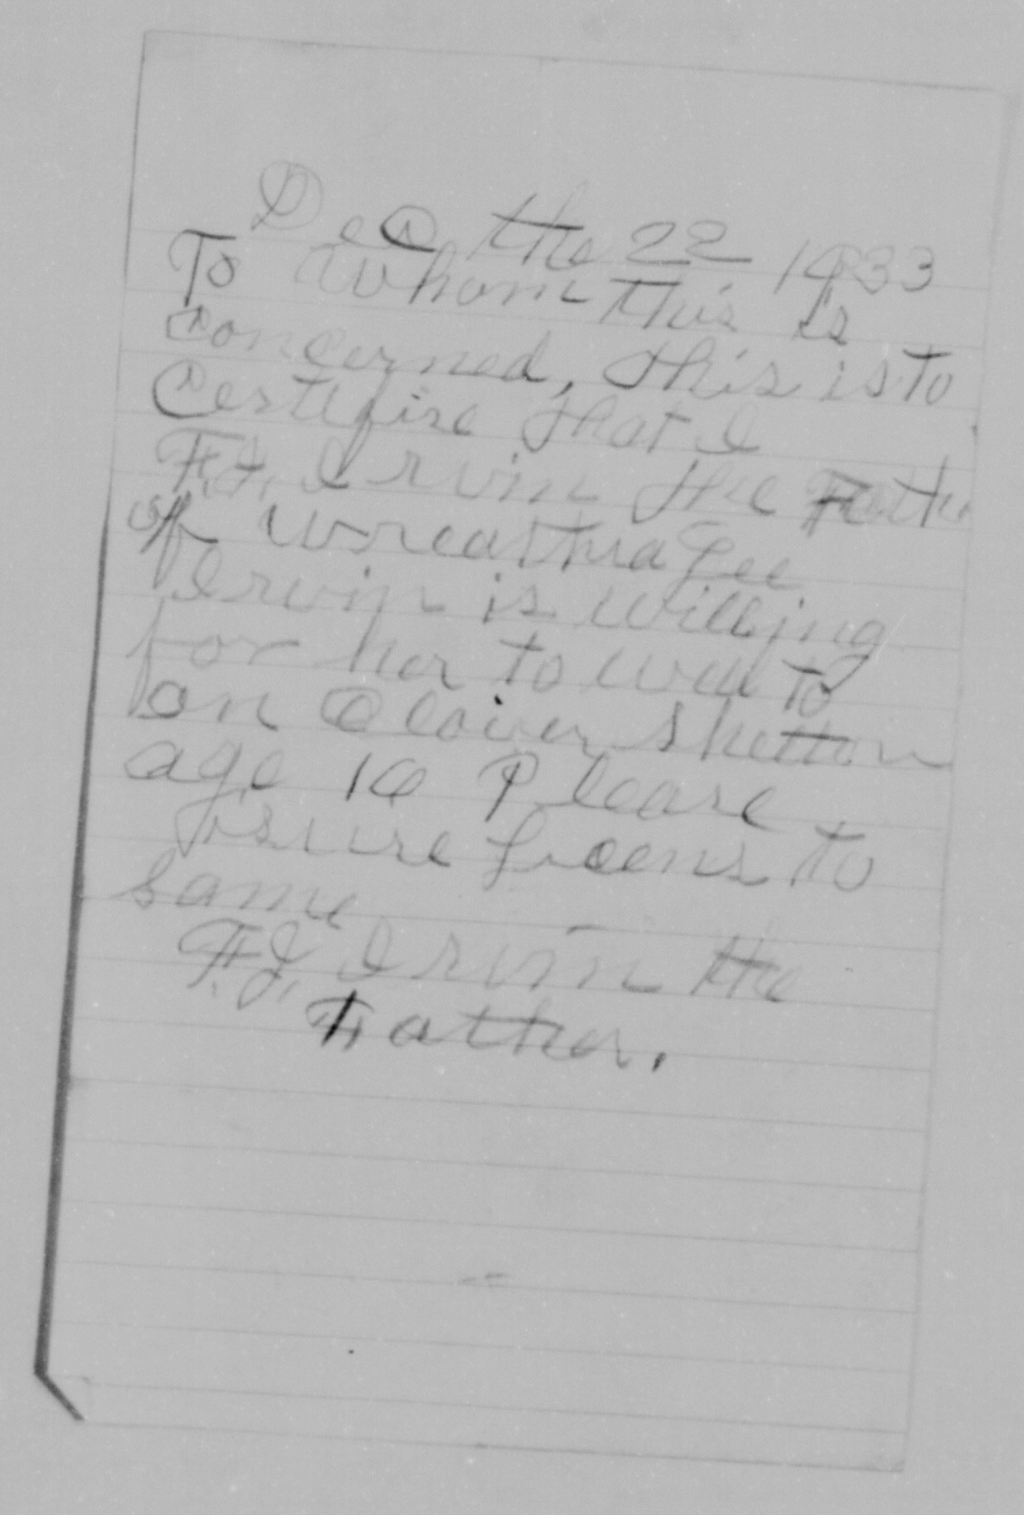 Dec the 22 1933
To Whom this is
concerned, this is to
Certifire that I
F.J. Irvin the Father
of Wreathra Lee
Irvin is willing
for her to wed to
on Cloiver Shetton
age 16 Please
isure licens to
same
F.J. Irvin the
Father.